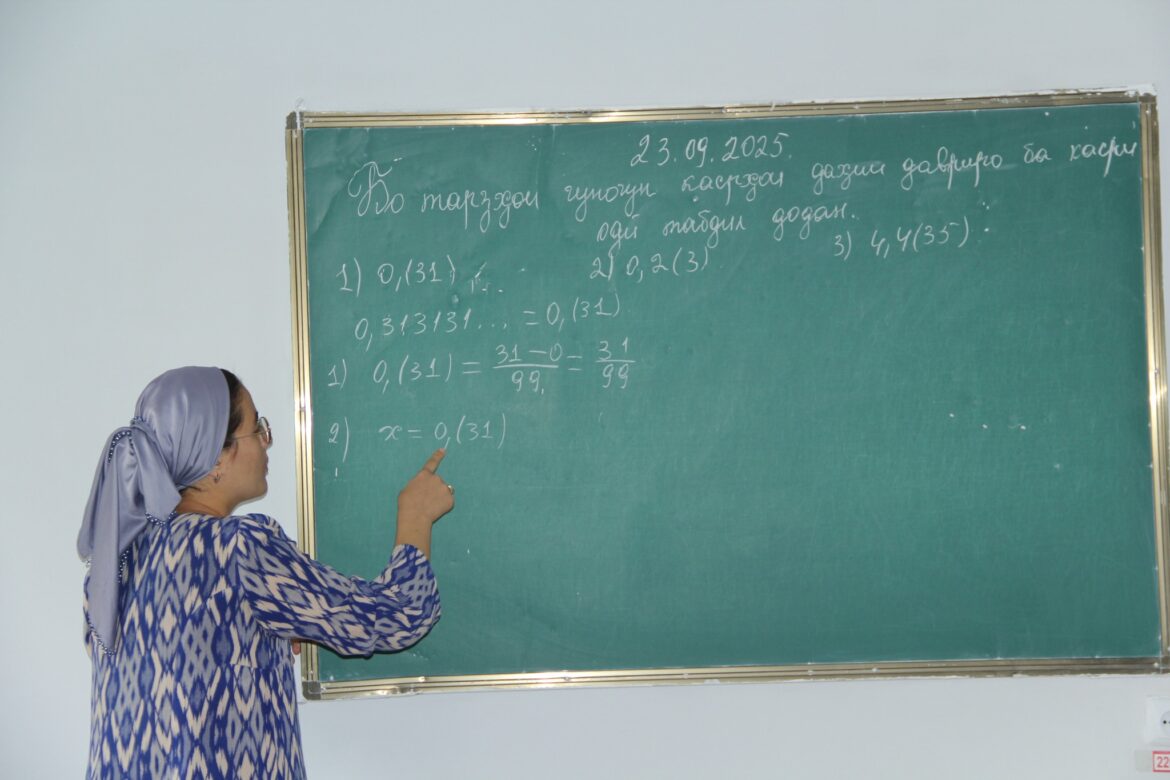 23.09.2025.
Бо тарзҳои гуногун касрҳои даҳии давриро ба касри
одӣ табдил додан.
1) 0,(31) 2) 0,2(3) 3) 4,4(35)
0,313131... = 0,(31)
1) 0,(31) = 31-0/99 = 31/99
2) x = 0,(31)
22